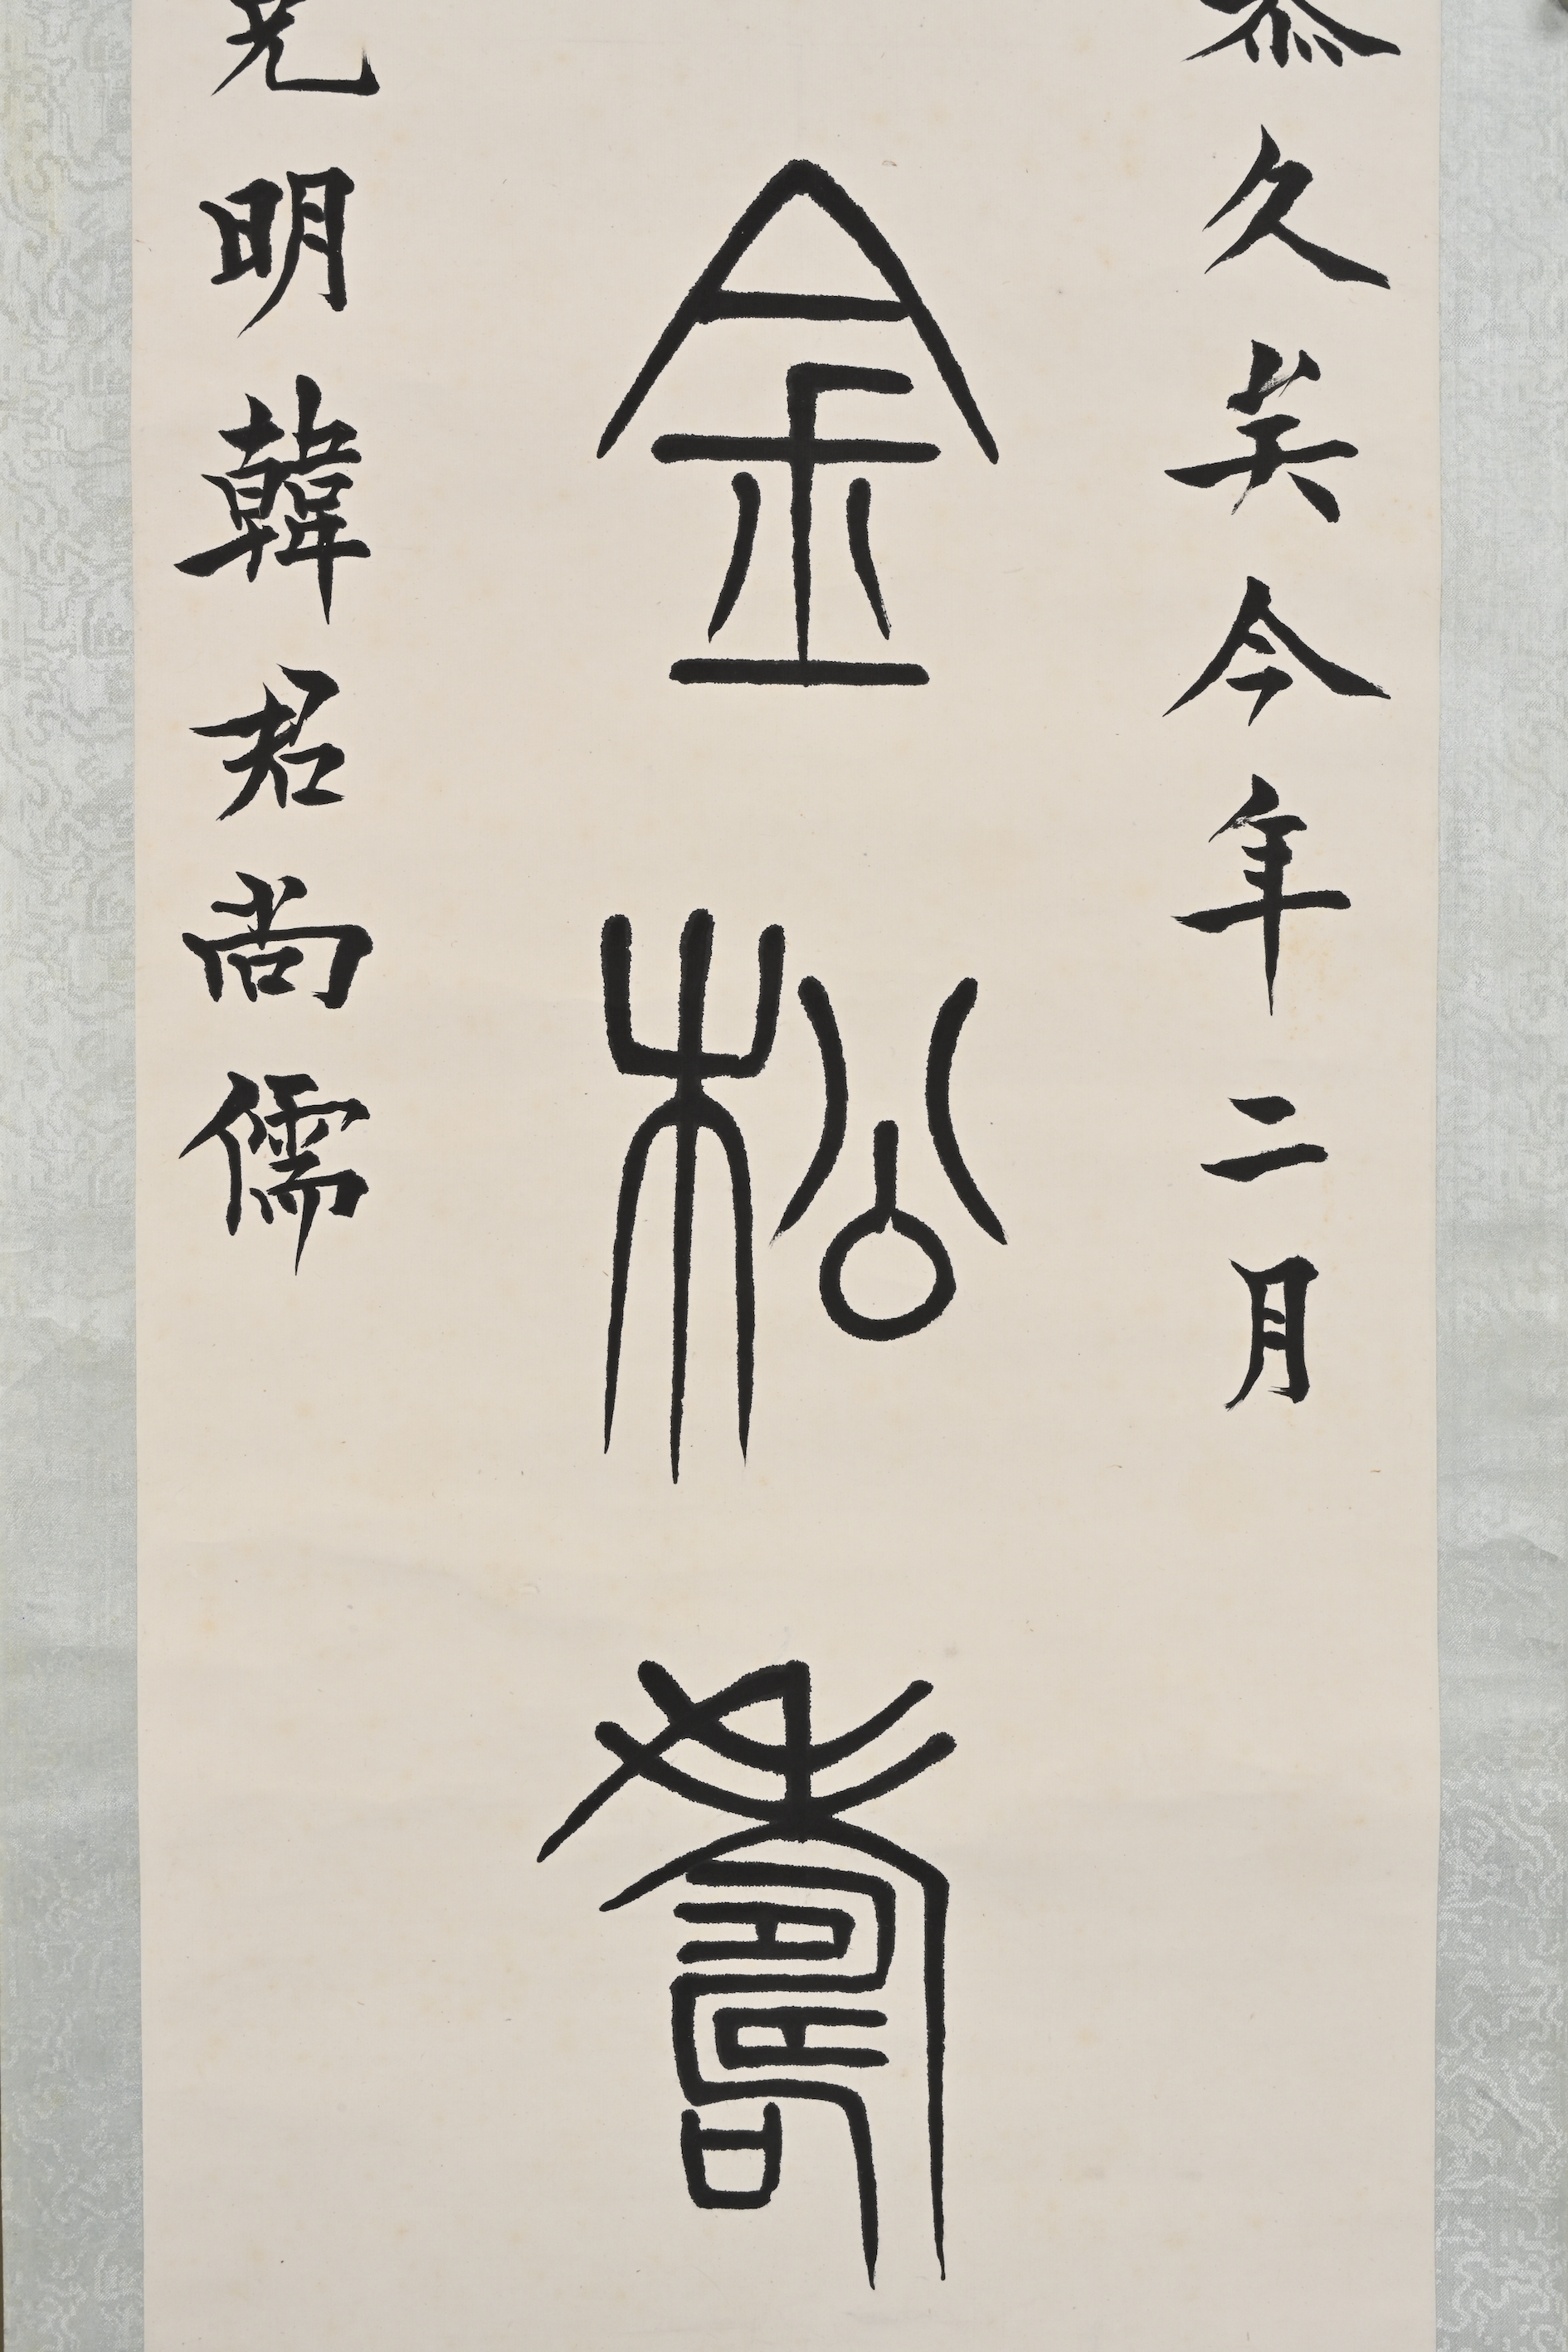 久矣今年二月
金松壽
明韓君尚儒